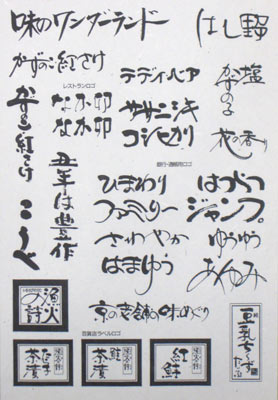 味のワンダーランド
はし野
かずのこ 紅さけ
レストランロゴ
なか卯
なか卯
テディベア
ササニシキ
コシヒカリ
塩
かずの子
花の香り
かずのこ紅さけ
こうべ
丑年は豊作
銀行・酒蔵用ロゴ
ひまわり
ファミリー
さわやか
はまゆう
はつらつ
ジャンプ。
ゆうゆう
あゆみ
京の老舗の味めぐり
百貨店ラベルロゴ
漁火の詩
茶漬
鮭
茶漬
紅鮭
豆乳ちーず